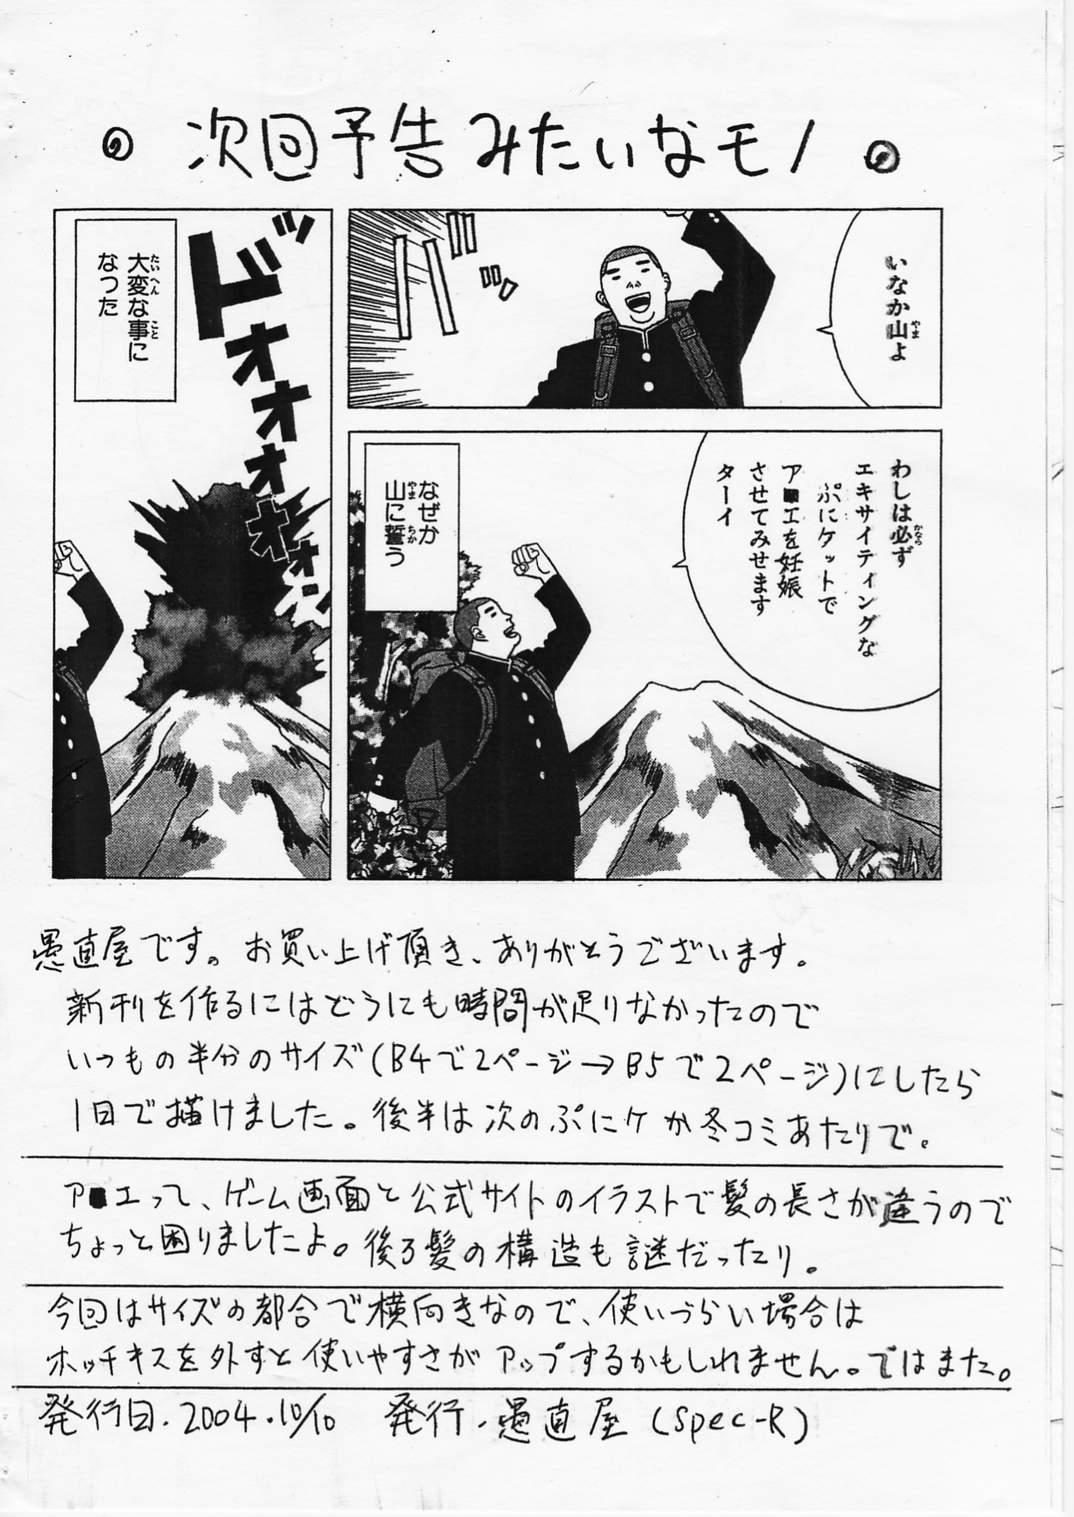 次回予告みたいなモノ
いなか山よ
やま
バ
バッ
わしは必ず
かなら
エキサイティングな
ぷにケットで
ア■エを妊娠
させてみせます
ターイ
なぜか
山に誓う
やま
ちか
ドッ
ドオオオオオォン
大変な事に
たいへん
こと
なった
愚直屋です。お買い上げ頂き、ありがとうございます。
新刊を作るにはどうにも時間が足りなかったので
いつもの半分のサイズ(B4で2ページ→B5で2ページ)にしたら
1日で描けました。後半は次のぷにケか冬コミあたりで。
ア■エって、ゲーム画面と公式サイトのイラストで髪の長さが違うので
ちょっと困りましたよ。後ろ髪の構造も謎だったり。
今回はサイズの都合で横向きなので、使いづらい場合は
ホッチキスを外すと使いやすさがアップするかもしれません。ではまた。
発行日・2004・10/10 発行・愚直屋(Spec-R)